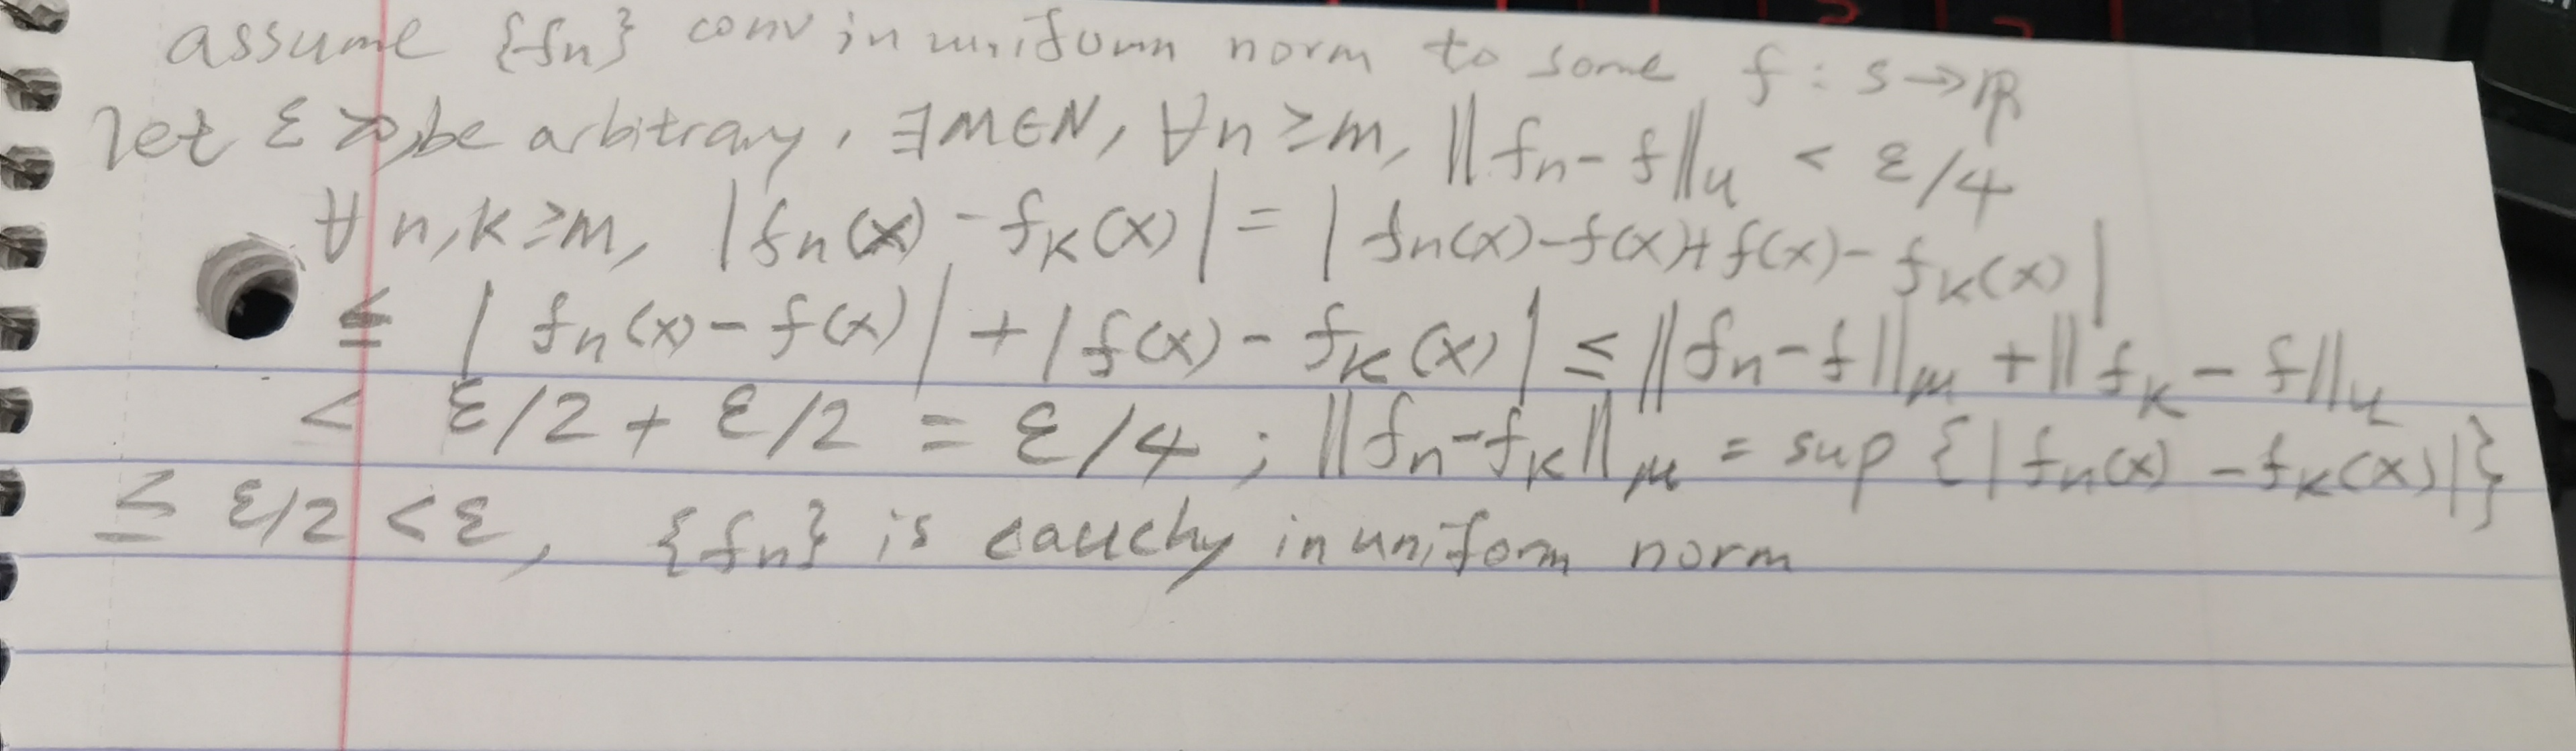 assume {fn} conv in uniform norm to some f : s → ℝ
let ε >0, be arbitrary, ∃M∈N, ∀n ≥m, ||fn - f||u < ε/4
∀ n,k ≥m, |fn(x) - fk(x)| = | fn(x)-f(x)+f(x)- fk(x)|
≤ | fn(x) - f(x)| + |f(x) - fk(x)| ≤ ||fn - f||u + ||fk - f||u
< ε/2 + ε/2 = ε/4 ; ||fn-fk||u = sup {|fn(x) - fk(x)|}
≤ ε/2 < ε, {fn} is cauchy in uniform norm